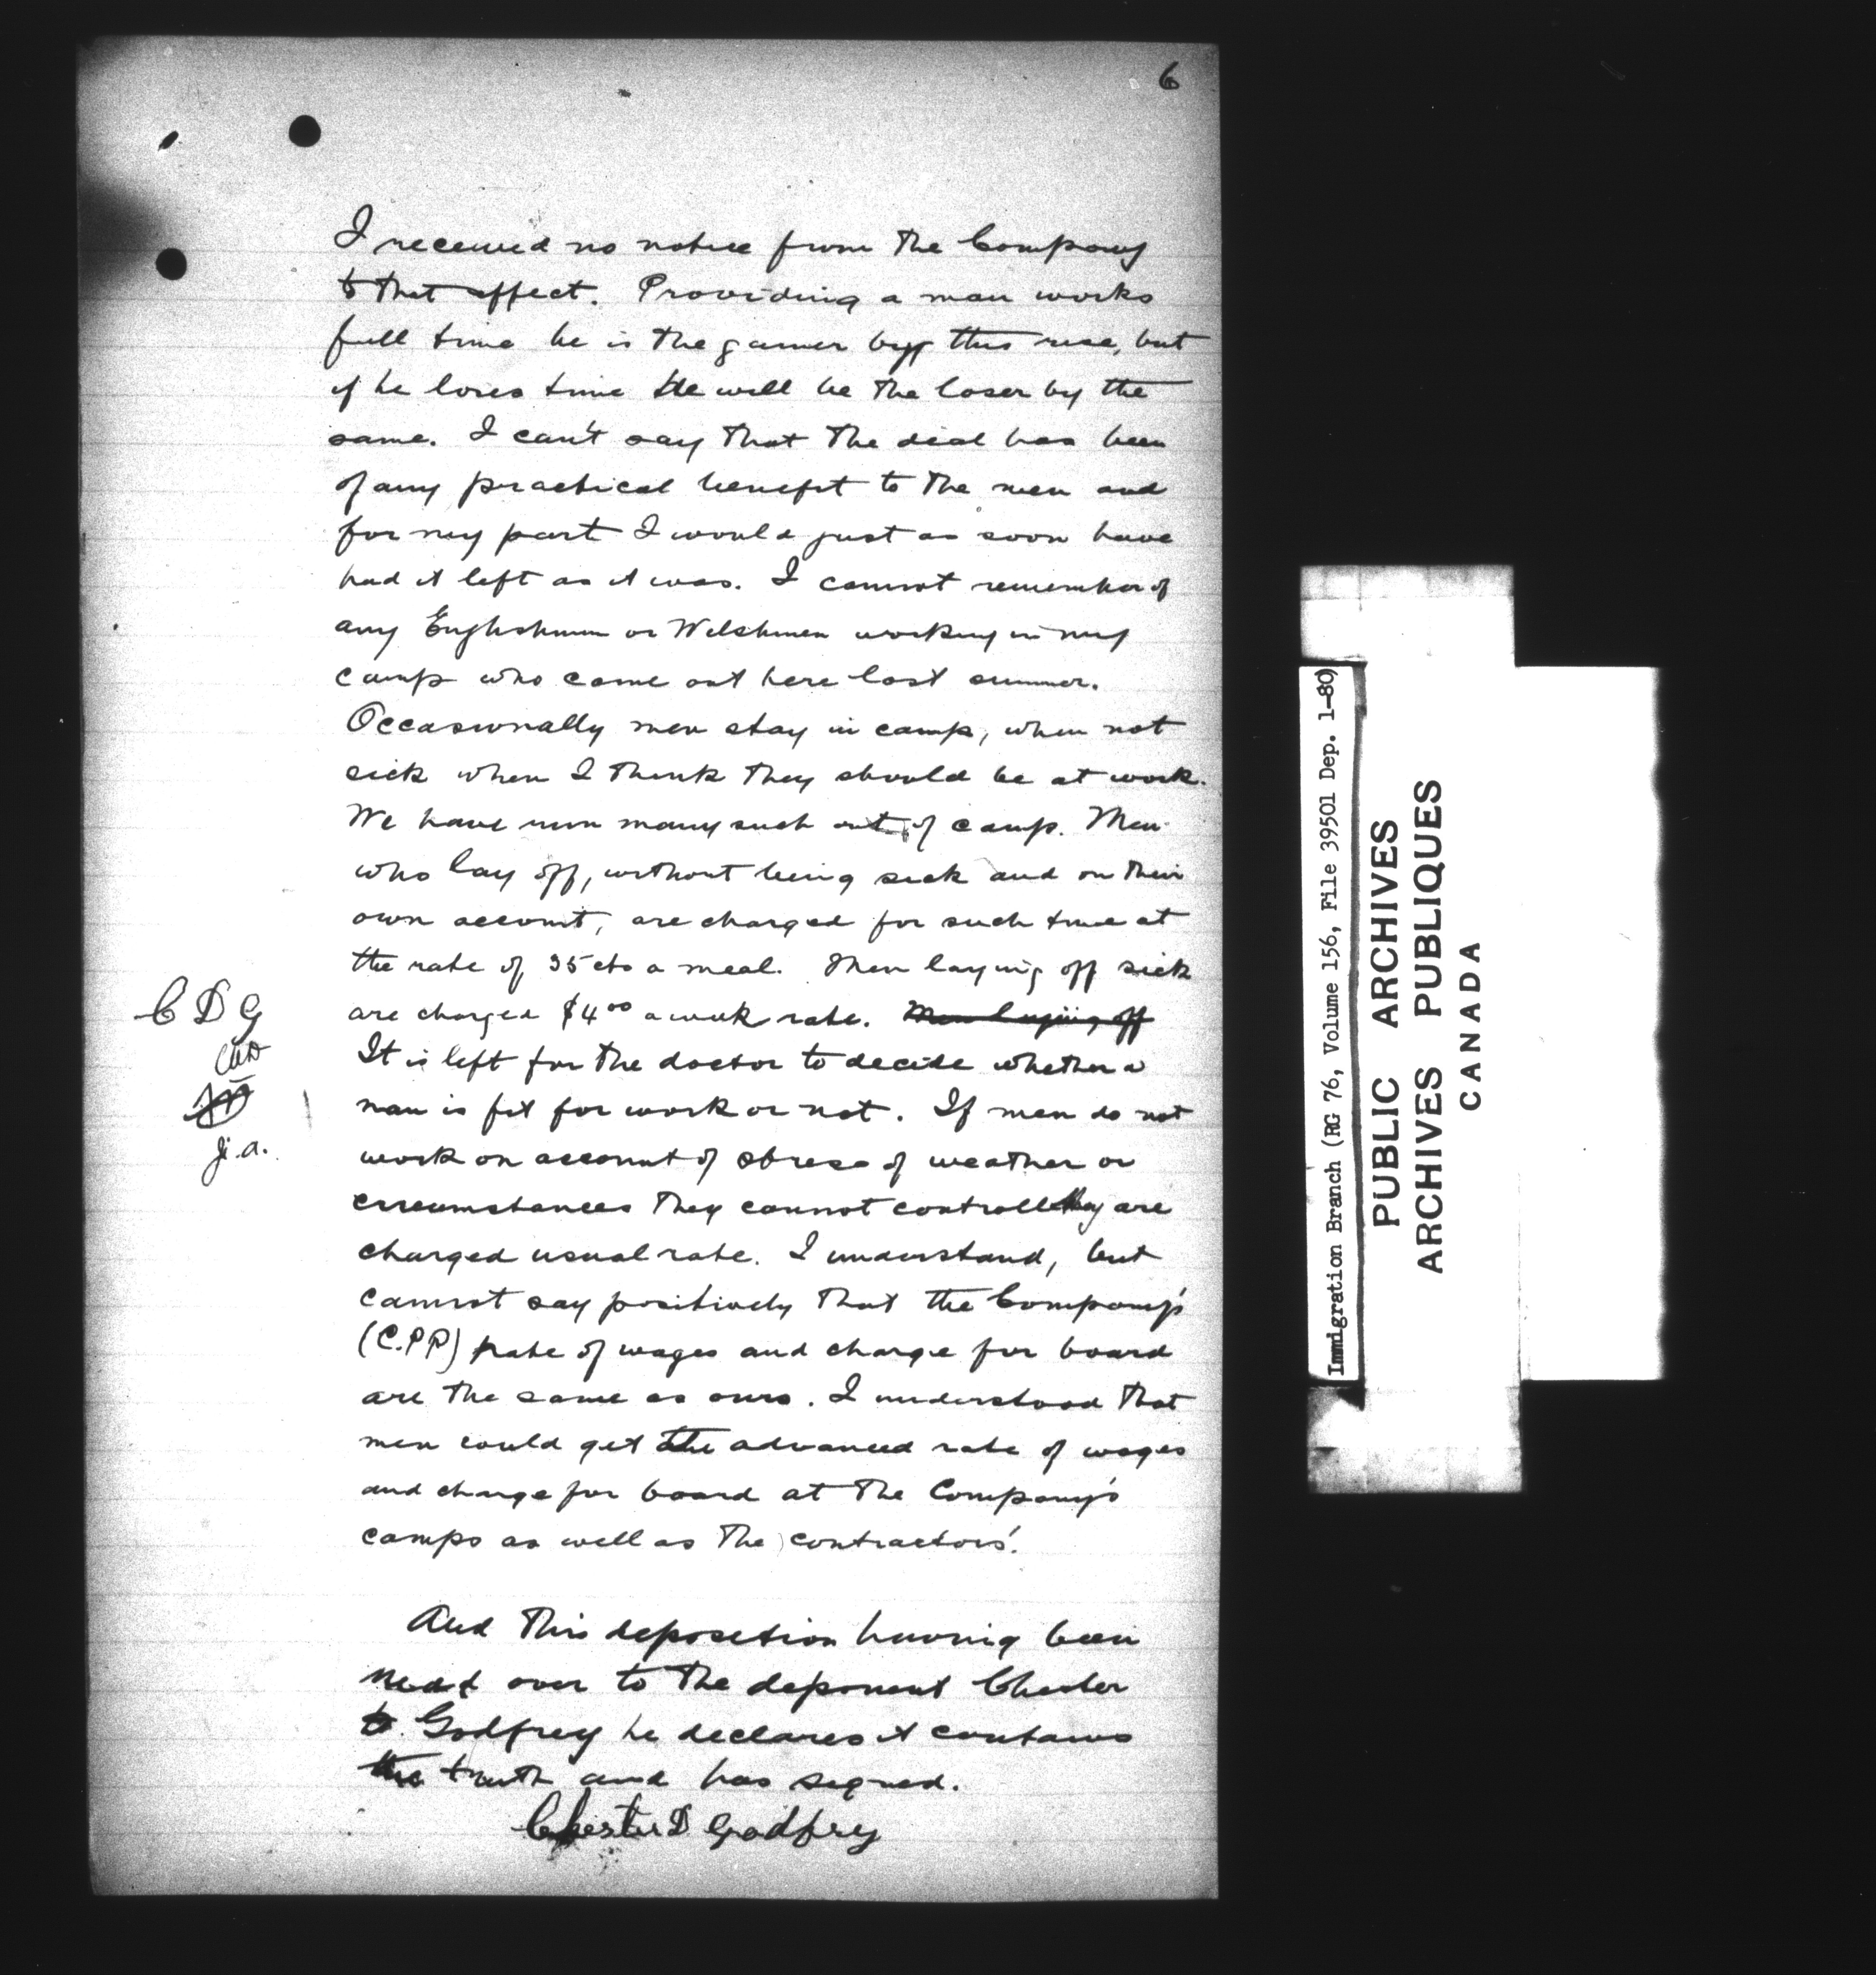 6
I received no notice from the Company
to that effect. Providing a man works
full time he is the gainer by this rise, but
if he loses time He will be the loser by the
same. I can't say that the deal has been
of any practical benefit to the men and
for my part I would just as soon have
had it left as it was. I cannot remember of
any Englishmen or Welshmen working in my
camp who came out here last summer.
Occasionally men stay in camp, when not
sick when I think they should be at work.
We have run many such out of camp. Men
who lay off, without being sick and on their
own account, are charged for such time at
the rate of 35 cts a meal. Men laying off sick
are charged $4.00 a week rate. Men laying off
C D G
It is left for the doctor to decide whether a
man is fit for work or not. If men do not
J.A.
work on account of stress of weather or
circumstances they cannot controll they are
charged usual rate. I understand, but
cannot say positively that the Company's
(C.P.R) rate of wages and charge for board
are the same as ours. I understood that
men could get the advanced rate of wages
and charge for board at the Company's
camps as well as the contractors'.
And this deposition having been
read over to the deponent Chester
D. Godfrey he declares it contains
the truth and has signed.
Chester D Godfrey
Immigration Branch (RG 76, Volume 156, File 39501 Dep. 1-80)
PUBLIC ARCHIVES
ARCHIVES PUBLIQUES
CANADA